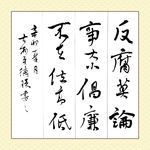 反腐莫論
事大小倡廉
不在位高低